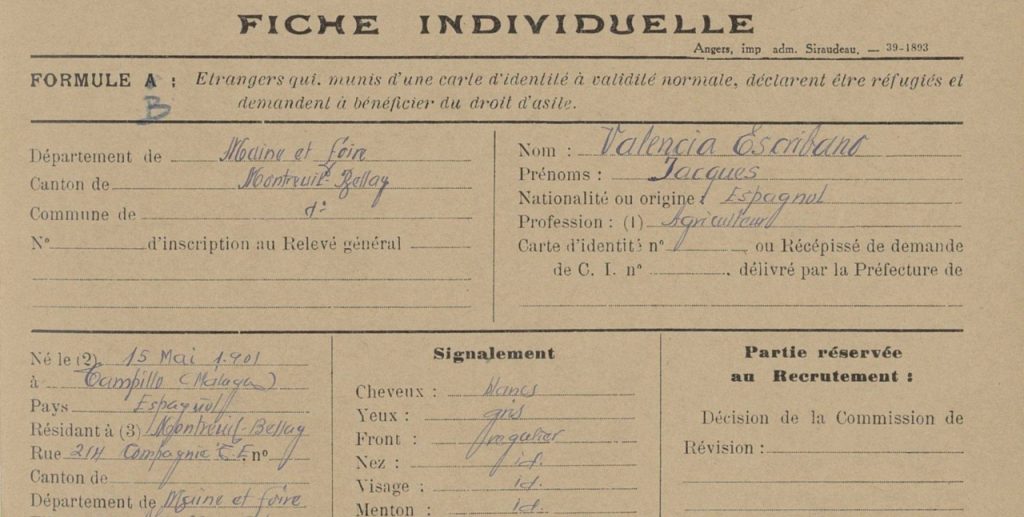 FICHE INDIVIDUELLE
Angers, imp adm. Siraudeau. — 39-1893
FORMULE A : Etrangers qui, munis d'une carte d'identité à validité normale, déclarent être réfugiés et
B demandent à bénéficier du droit d'asile.
Département de Maine et Loire
Canton de Montreuil-Bellay
Commune de dº
N° d'inscription au Relevé général
Nom : Valencia Escribano
Prénoms : Jacques
Nationalité ou origine : Espagnol
Profession : (1) Agriculteur
Carte d'identité n° , ou Récépissé de demande
de C. I. n° , délivré par la Préfecture de
Né le (2) 15 Mai 1.901
à Campillo (Malaga)
Pays Espagnol
Résidant à (3) Montreuil-Bellay
Rue 214 Compagnie T.E. n°
Canton de
Département de Maine et Loire
Signalement
Cheveux : blancs
Yeux : gris
Front : regulier
Nez : id.
Visage : id.
Menton : id.
Partie réservée
au Recrutement :
Décision de la Commission de
Révision :